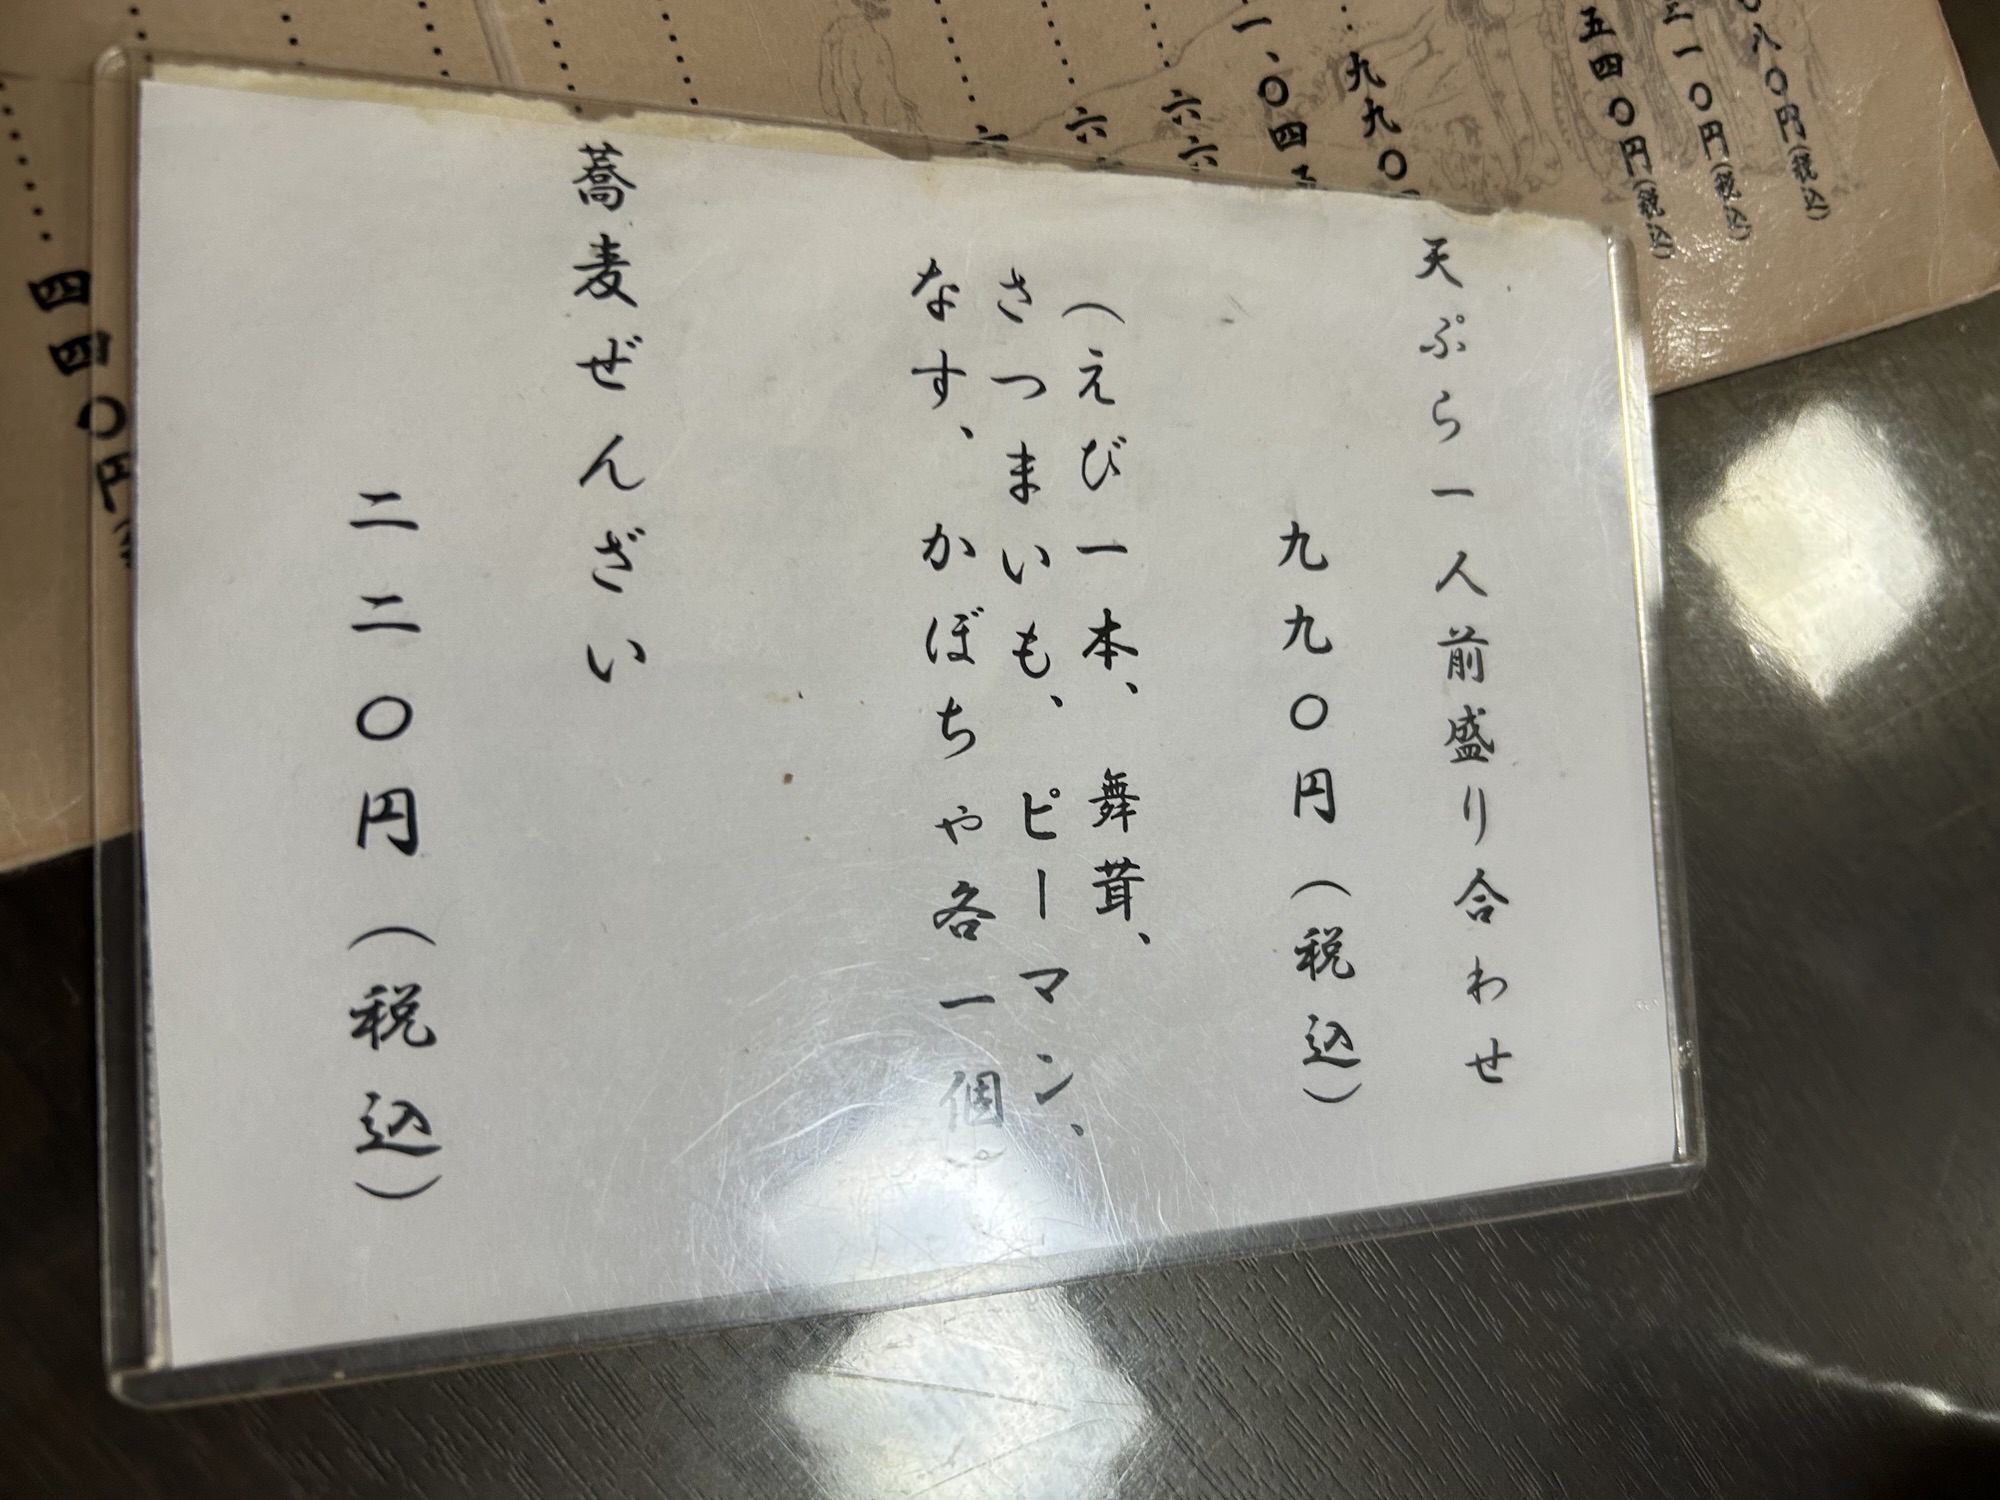 天ぷら一人前盛り合わせ
九九〇円（税込）
（えび一本、舞茸、
さつまいも、ピーマン、
なす、かぼちゃ各一個）
蕎麦ぜんざい
二二〇円（税込）
八〇円(税込)
一〇円(税込)
五四〇円(税込)
九九〇
一、〇四
六六
六
六
四四〇円